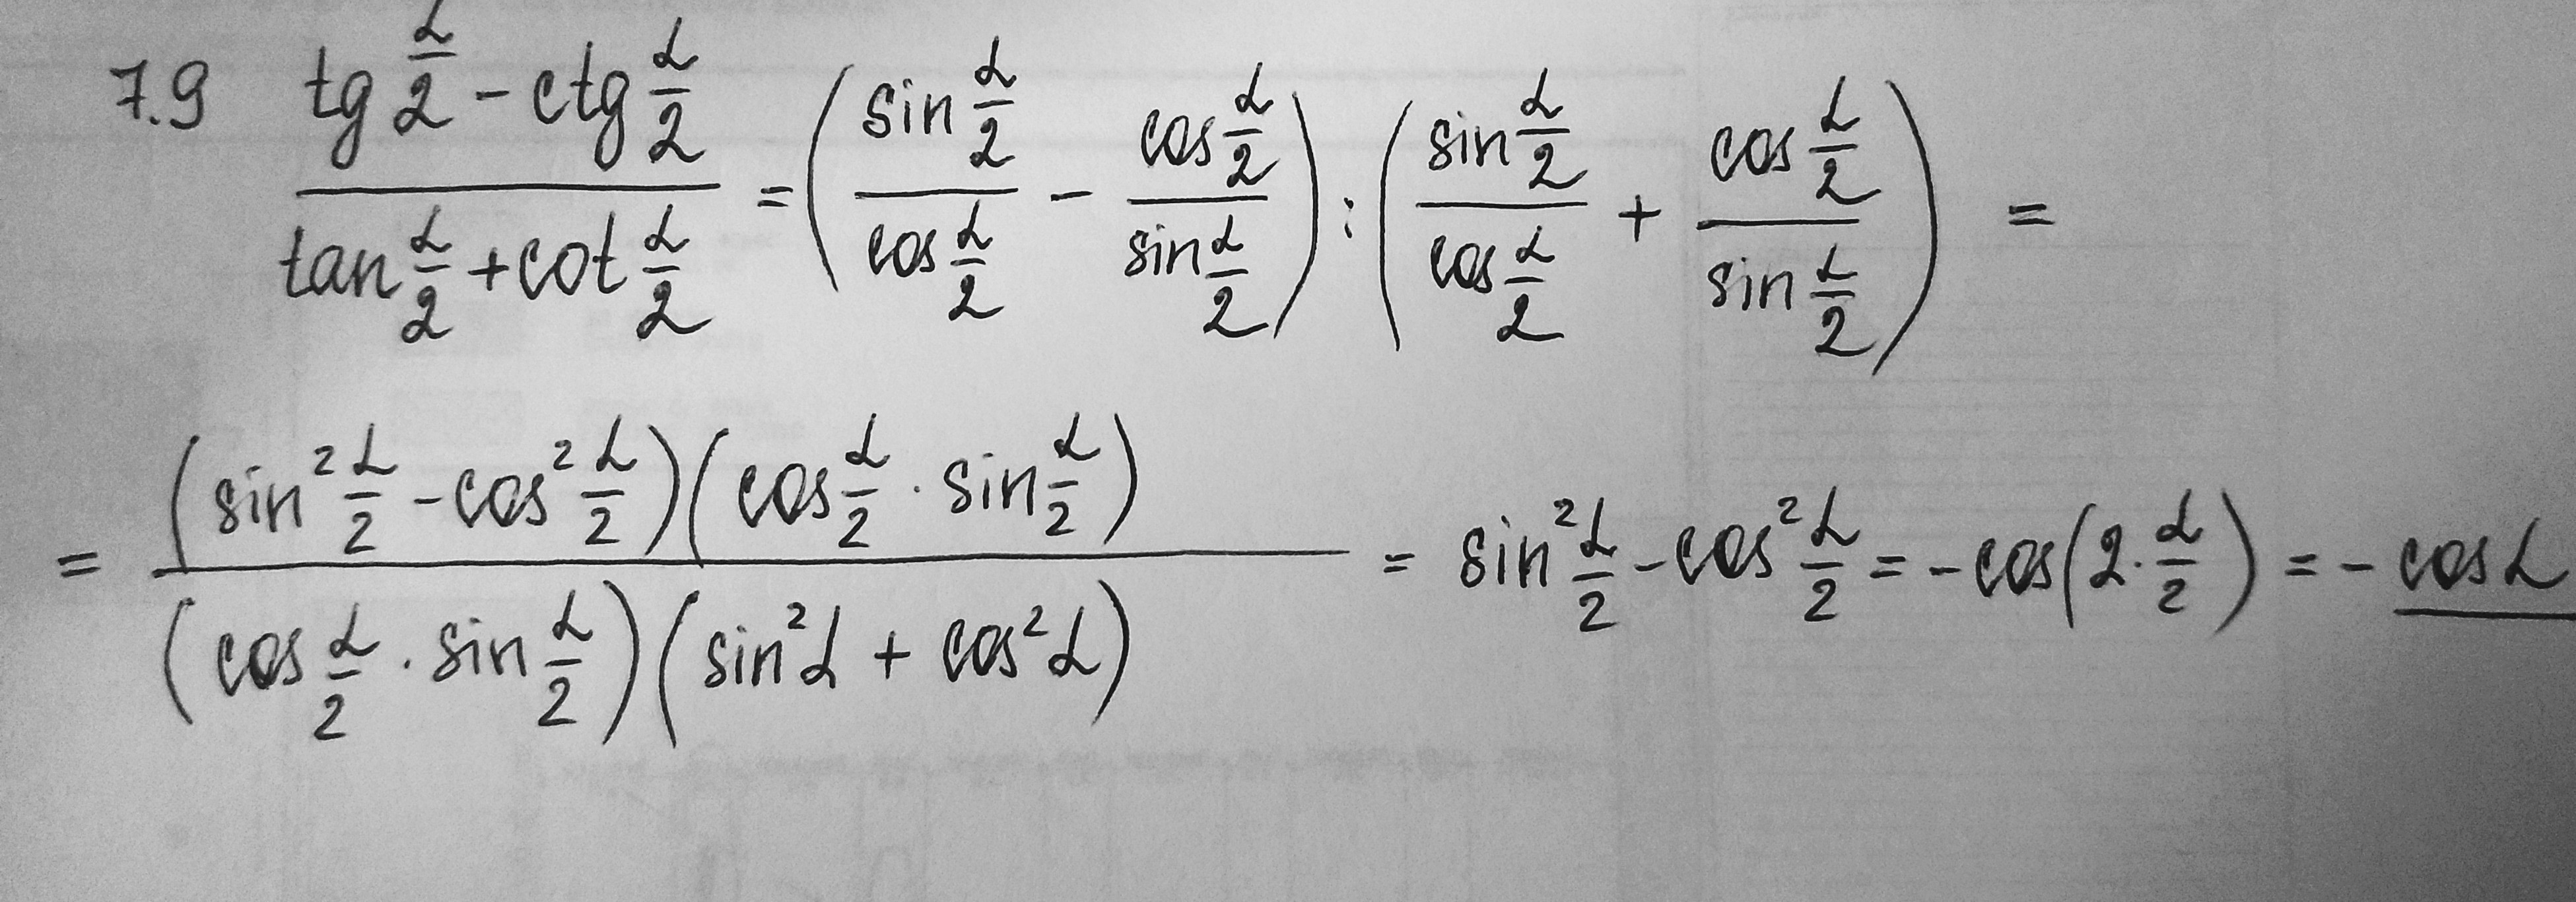 7.9 (tg α/2 - ctg α/2)/(tan α/2 + cot α/2) = (sin α/2 / cos α/2 - cos α/2 / sin α/2) : (sin α/2 / cos α/2 + cos α/2 / sin α/2) =
= ((sin² α/2 - cos² α/2)(cos α/2 · sin α/2))/((cos α/2 · sin α/2)(sin² α + cos² α)) = sin² α/2 - cos² α/2 = - cos(2 · α/2) = - cos α